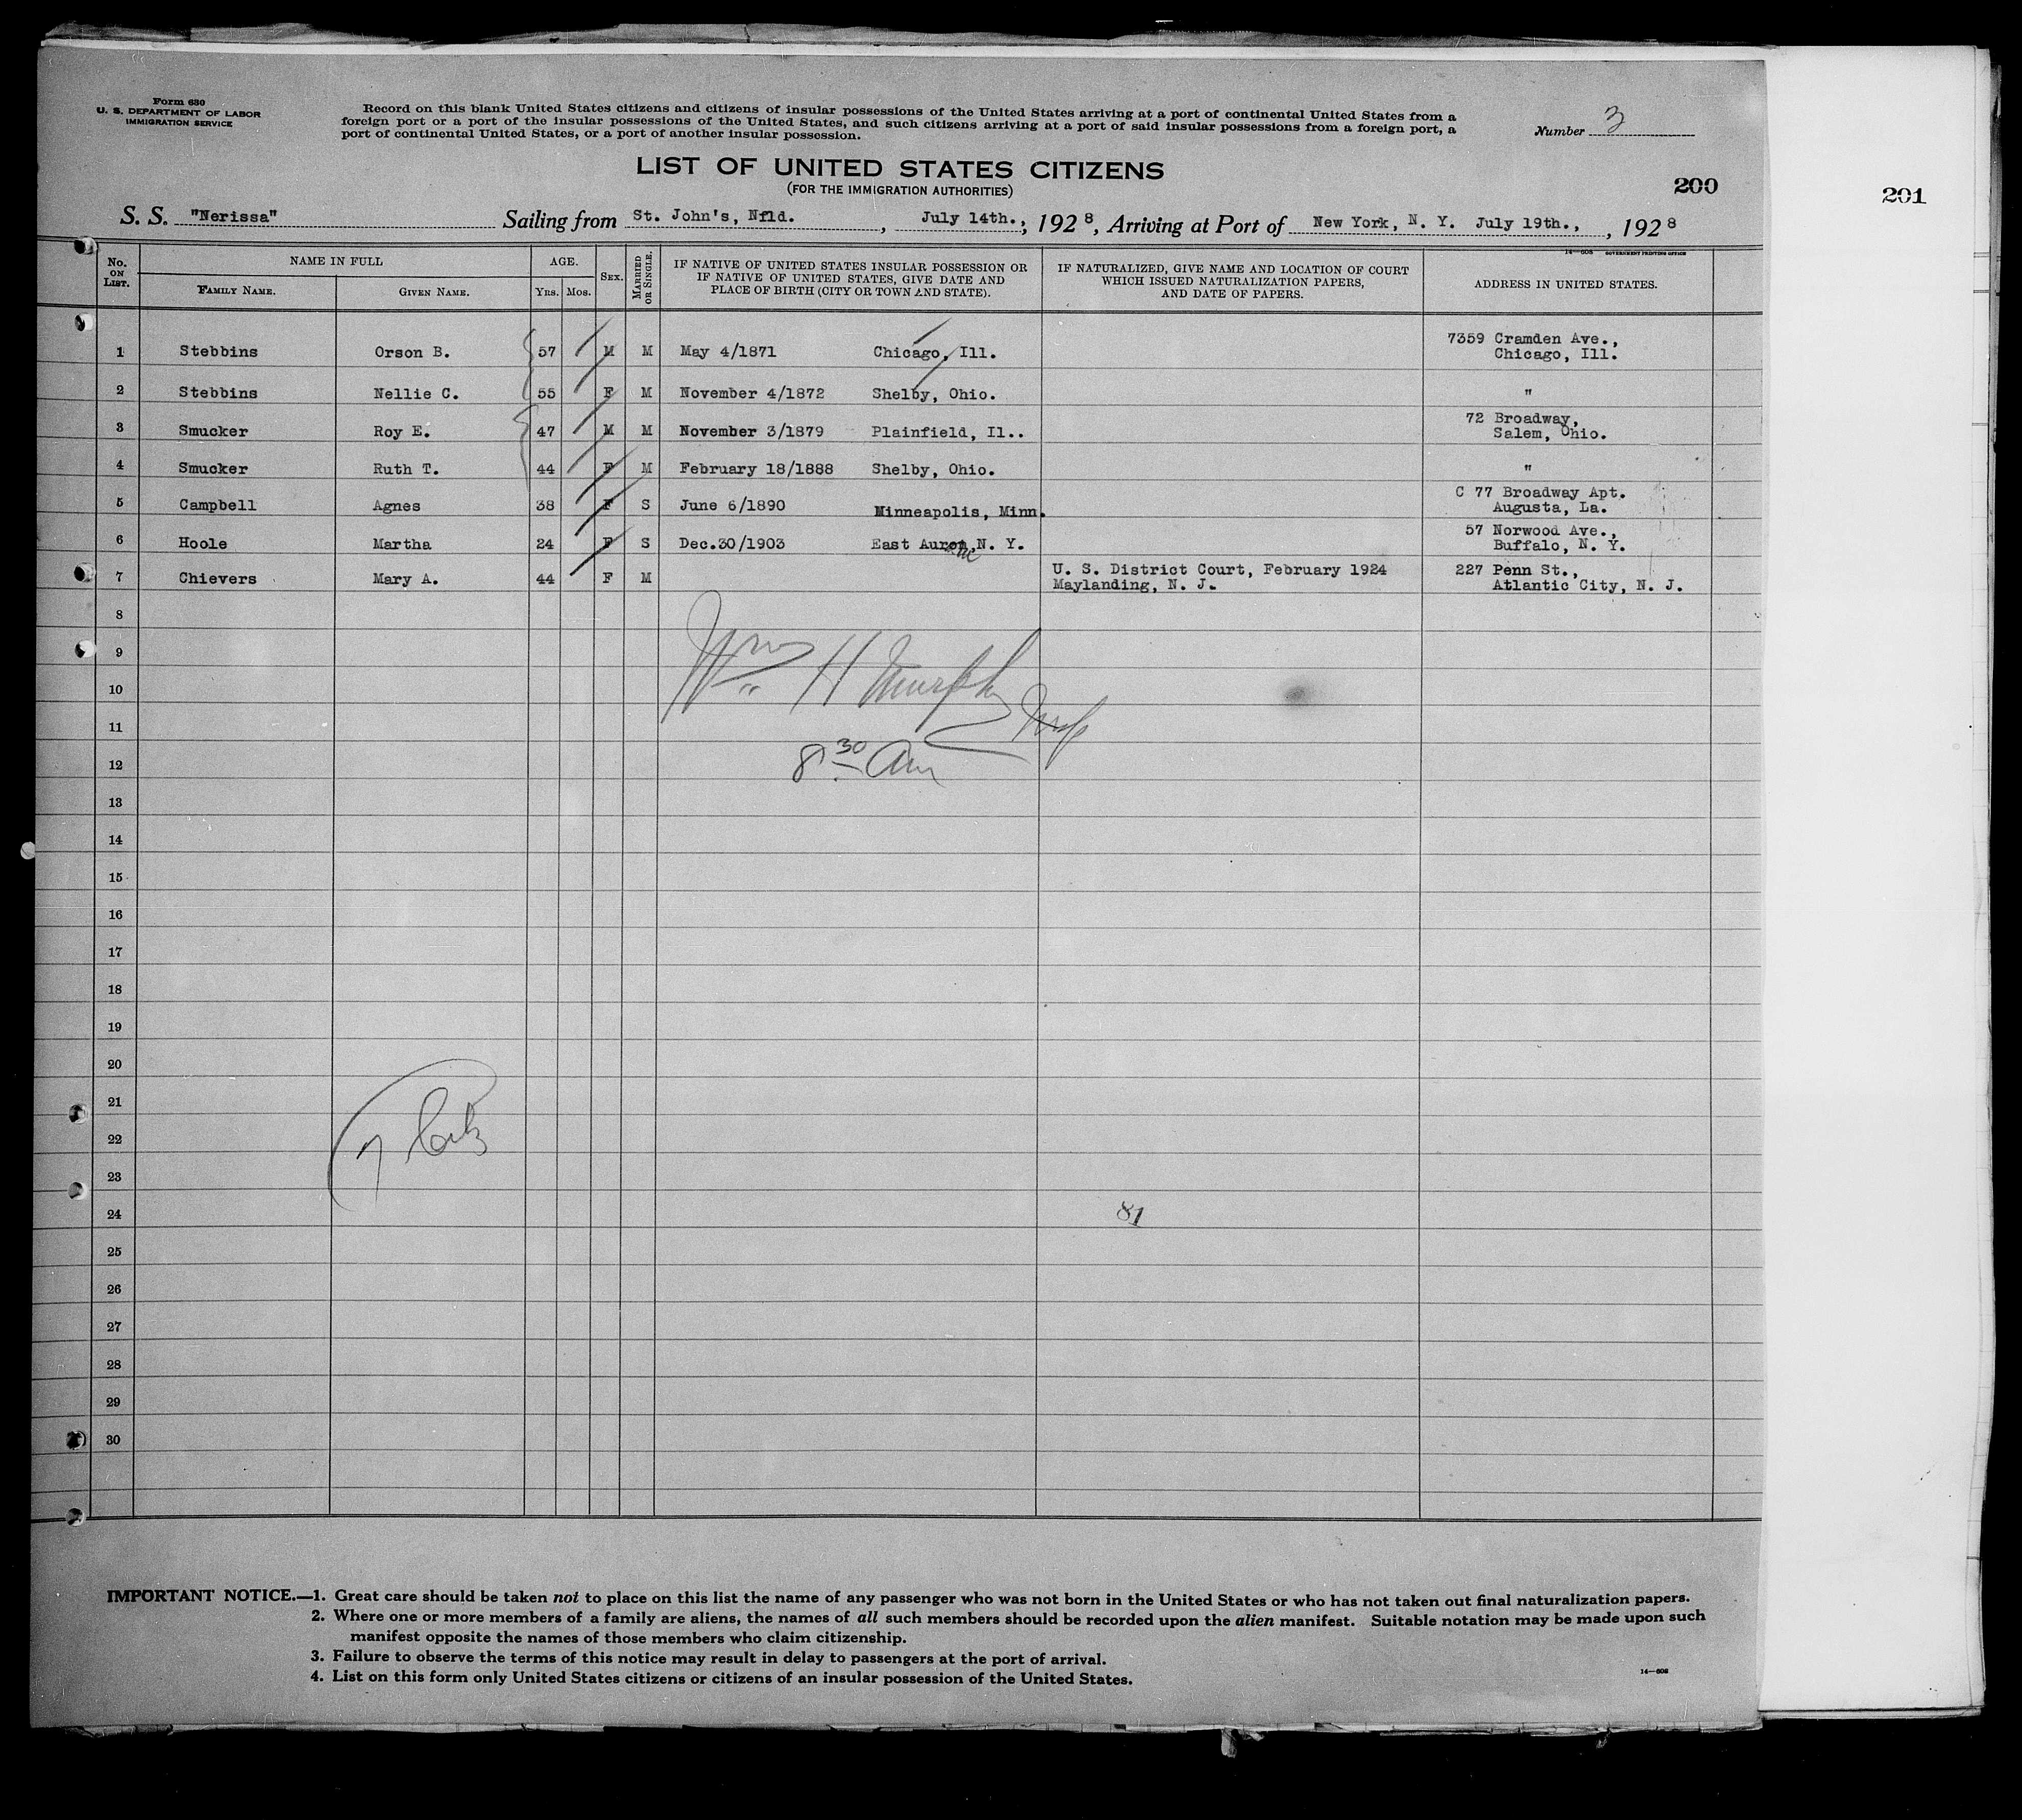 Form 630
U. S. DEPARTMENT OF LABOR
IMMIGRATION SERVICE
Record on this blank United States citizens and citizens of insular possessions of the United States arriving at a port of continental United States from a
foreign port or a port of the insular possessions of the United States, and such citizens arriving at a port of said insular possessions from a foreign port, a
port of continental United States, or a port of another insular possession.
Number 3
LIST OF UNITED STATES CITIZENS
(FOR THE IMMIGRATION AUTHORITIES)
200
201
S. S. "Nerissa" Sailing from St. John's, Nfld. , July 14th., , 1928, Arriving at Port of New York, N. Y. July 19th., , 1928
14—608 GOVERNMENT PRINTING OFFICE
No. ON LIST.
NAME IN FULL
FAMILY NAME.
GIVEN NAME.
AGE.
Yrs. Mos.
SEX.
MARRIED OR SINGLE.
IF NATIVE OF UNITED STATES INSULAR POSSESSION OR
IF NATIVE OF UNITED STATES, GIVE DATE AND
PLACE OF BIRTH (CITY OR TOWN AND STATE).
IF NATURALIZED, GIVE NAME AND LOCATION OF COURT
WHICH ISSUED NATURALIZATION PAPERS,
AND DATE OF PAPERS.
ADDRESS IN UNITED STATES.
1 Stebbins Orson B. 57 M M May 4/1871 Chicago, Ill. 7359 Cramden Ave.,
Chicago, Ill.
2 Stebbins Nellie C. 55 F M November 4/1872 Shelby, Ohio. "
3 Smucker Roy E. 47 M M November 3/1879 Plainfield, Il.. 72 Broadway,
Salem, Ohio.
4 Smucker Ruth T. 44 F M February 18/1888 Shelby, Ohio. "
5 Campbell Agnes 38 F S June 6/1890 Minneapolis, Minn. C 77 Broadway Apt.
Augusta, La.
6 Hoole Martha 24 F S Dec.30/1903 East Auron, N. Y. 57 Norwood Ave.,
Buffalo, N. Y.
7 Chievers Mary A. 44 F M U. S. District Court, February 1924 227 Penn St.,
Maylanding, N. J. Atlantic City, N. J.
8
9
Wm H Murphy
10
11
12
8 30 Am
13
14
15
16
17
18
19
20
21
22
7 Citz
23
24
81
25
26
27
28
29
30
IMPORTANT NOTICE.—1. Great care should be taken not to place on this list the name of any passenger who was not born in the United States or who has not taken out final naturalization papers.
2. Where one or more members of a family are aliens, the names of all such members should be recorded upon the alien manifest. Suitable notation may be made upon such
manifest opposite the names of those members who claim citizenship.
3. Failure to observe the terms of this notice may result in delay to passengers at the port of arrival.
4. List on this form only United States citizens or citizens of an insular possession of the United States.
14—608